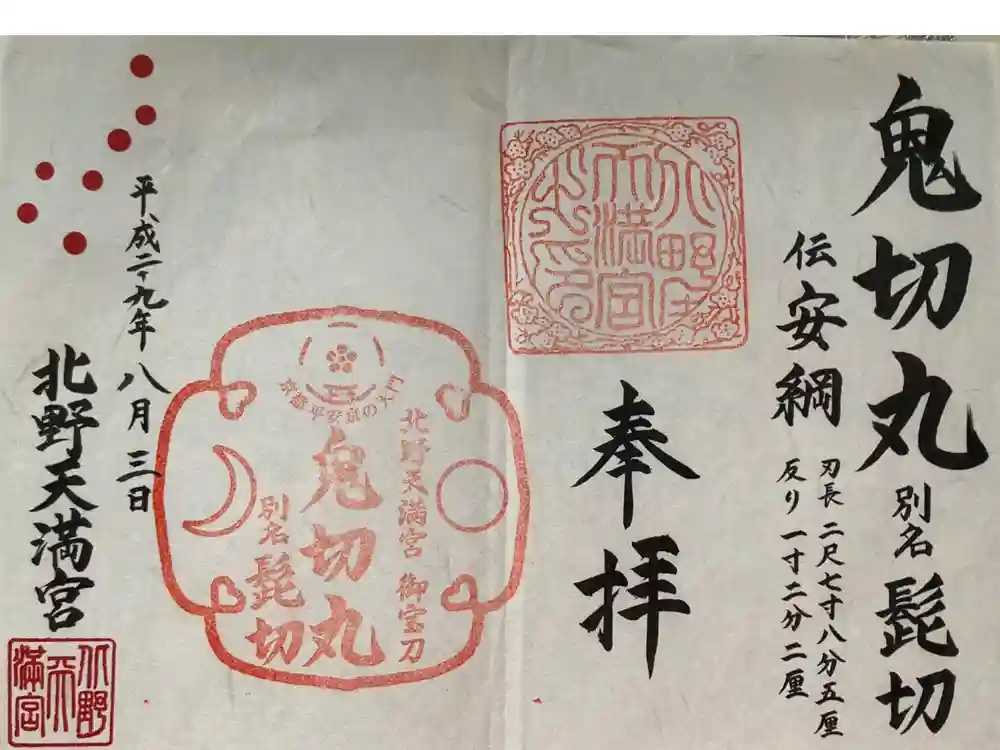 鬼切丸 別名 髭切
伝安綱
刃長 二尺七寸八分五厘
反り 一寸二分二厘
奉拝
北野天満宮 御宝刀
鬼切丸
別名 髭切
平成二九年八月三日
北野天満宮
北野
天
満宮